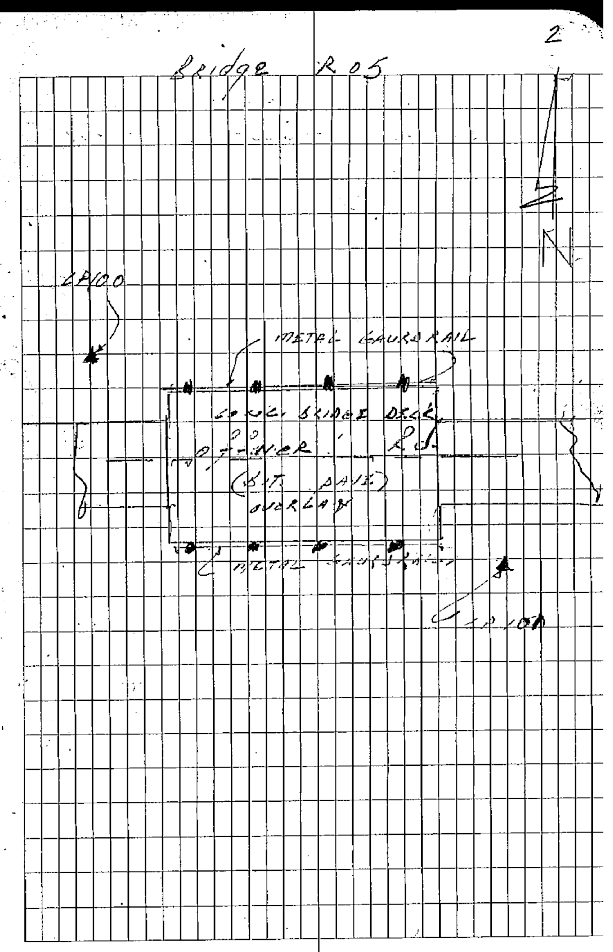 2
Bridge R05
N
CP100
METAL GAURDRAIL
CONC. BRIDGE DECK
Rd.
(BIT. PAVE)
OVERLAY
METAL GAURDRAIL
CP 101